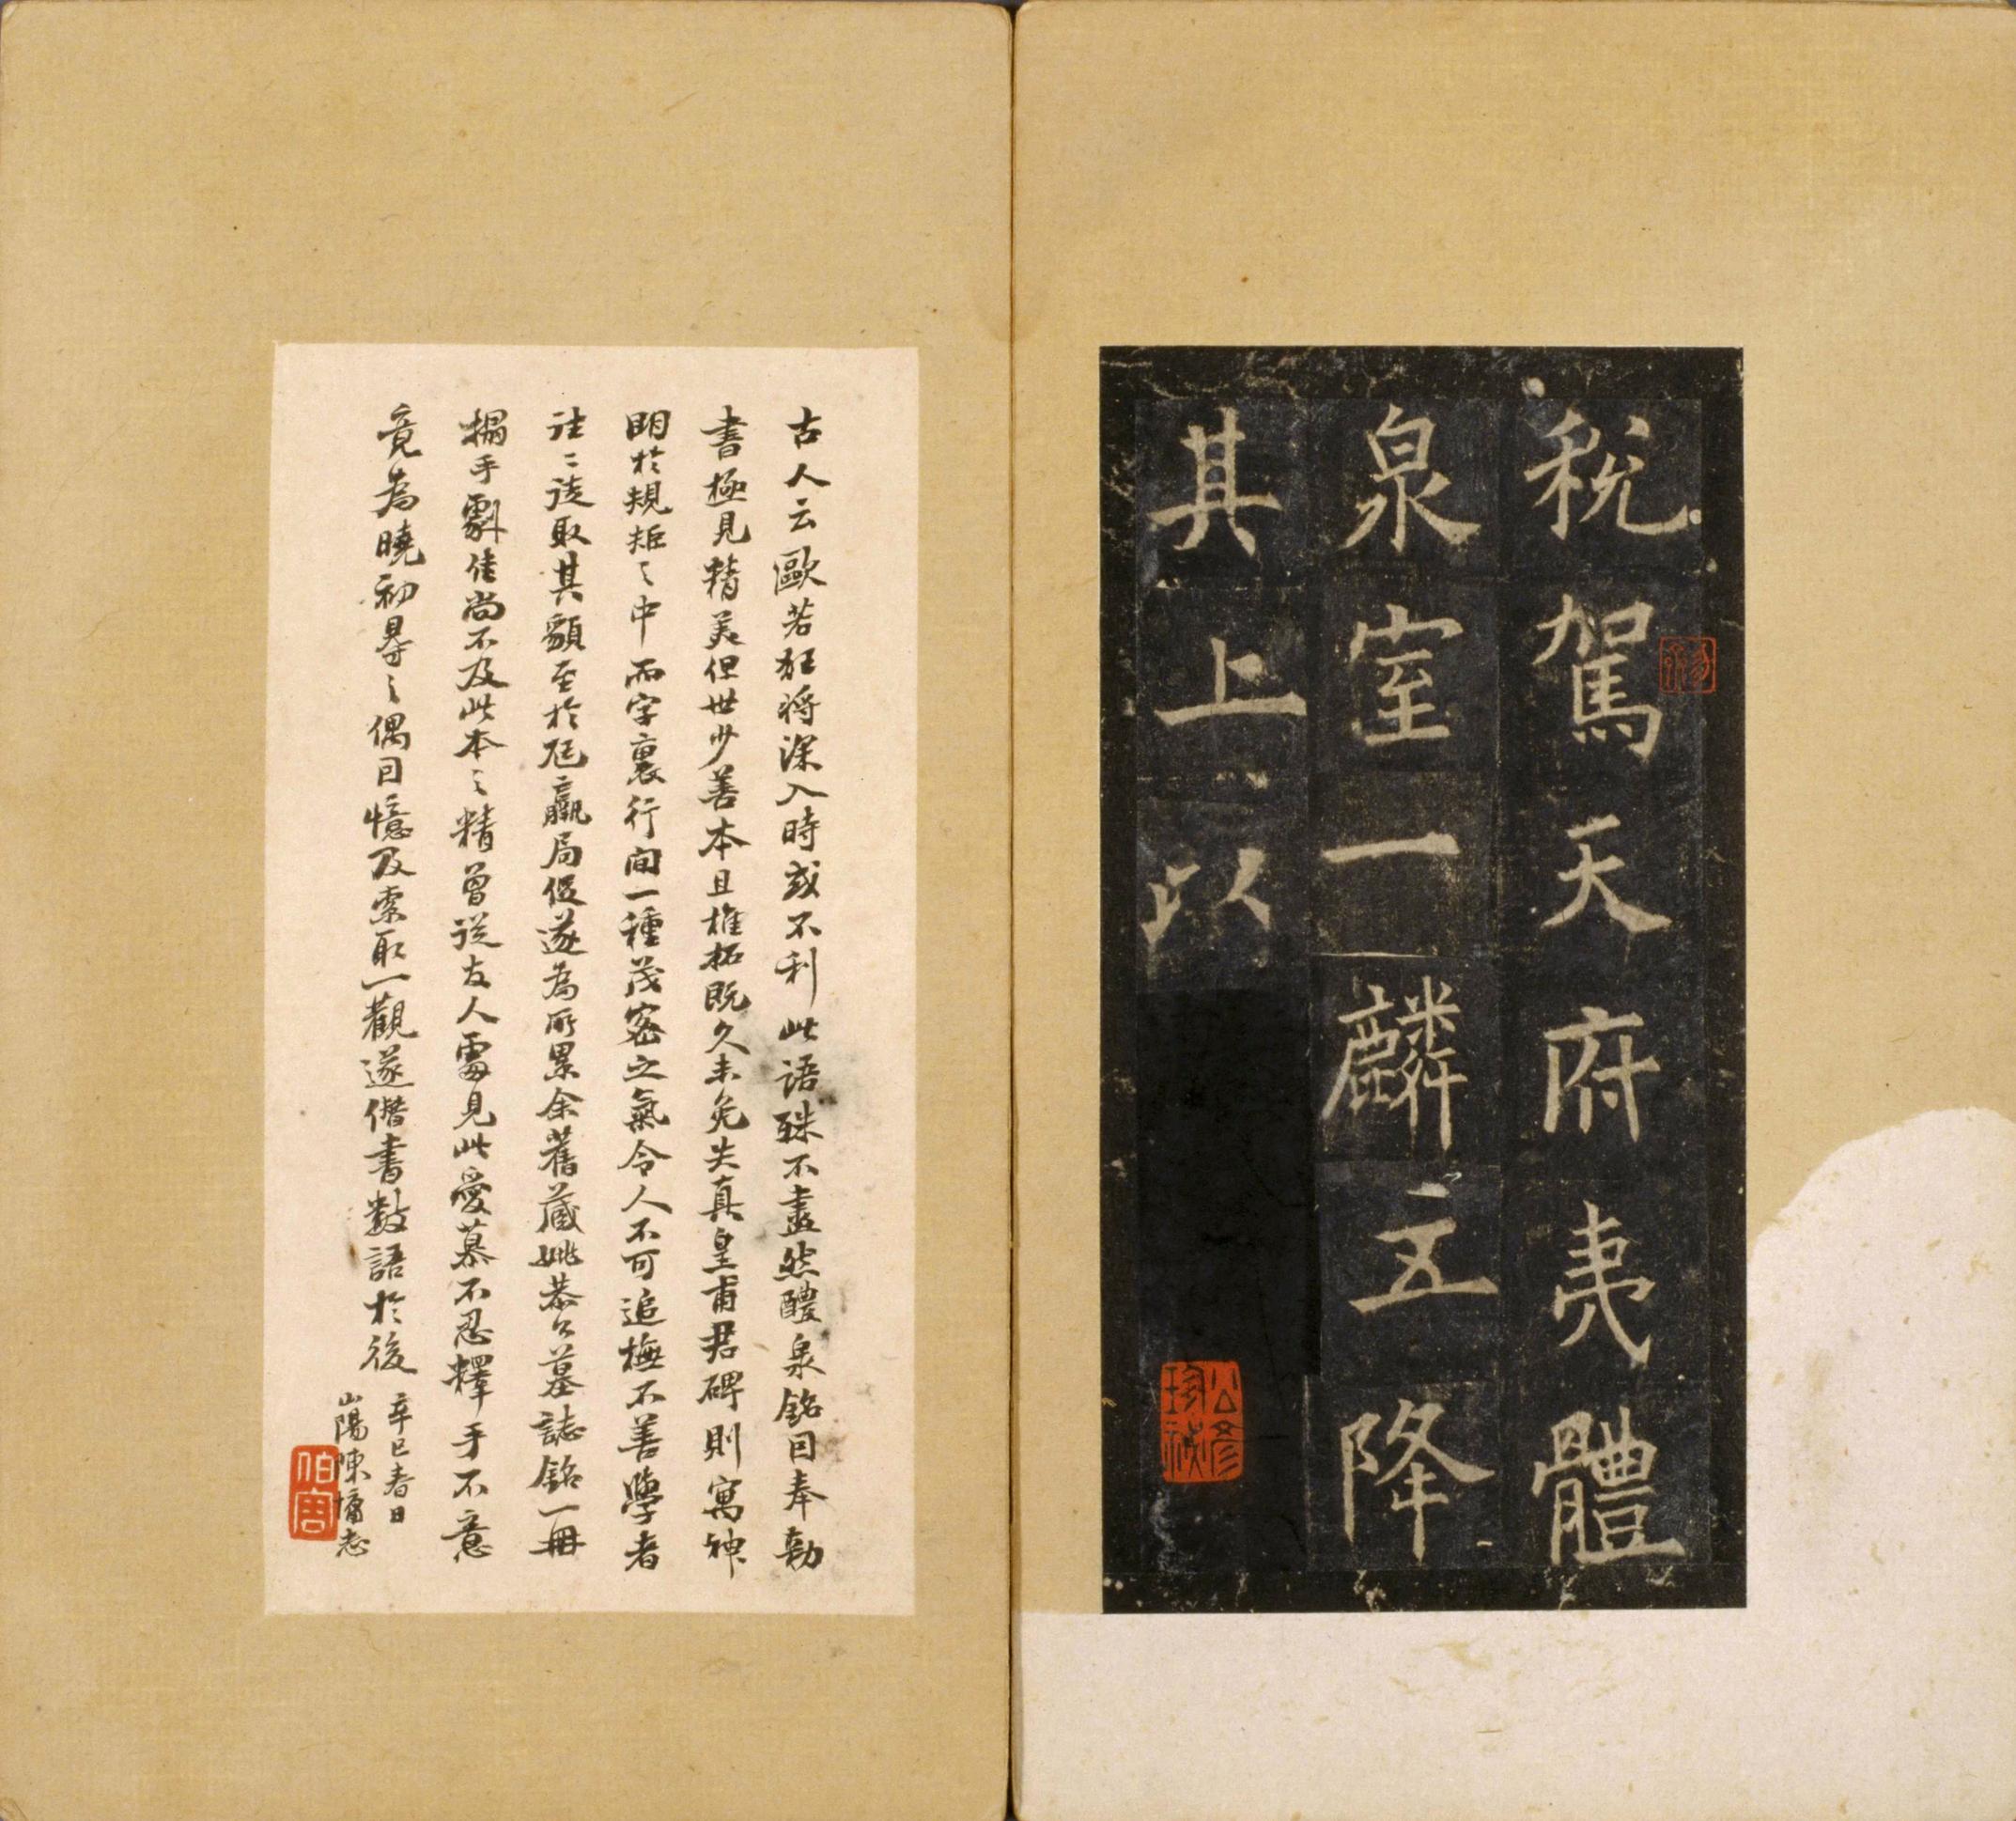 稅駕天府夷體
泉室一麟五降
其上以
公彥珍祕
古人云歐若狂將深入時或不利此語殊不盡然醴泉銘因奉勅
書極見精美但世少善本且椎拓既久未免失真皇甫君碑則寓神
明於規矩之中而字裏行間一種茂密之氣令人不可追橅不善學者
往〻徒取其貌至於尪羸局促遂為所累余舊藏姚恭公墓誌銘一冊
搨手劇佳尚不及此本之精曾從友人處見此愛慕不忍釋手不意
竟為曉初得之偶因憶及索取一觀遂僭書數語於後
辛巳春日
山陽陳墉志